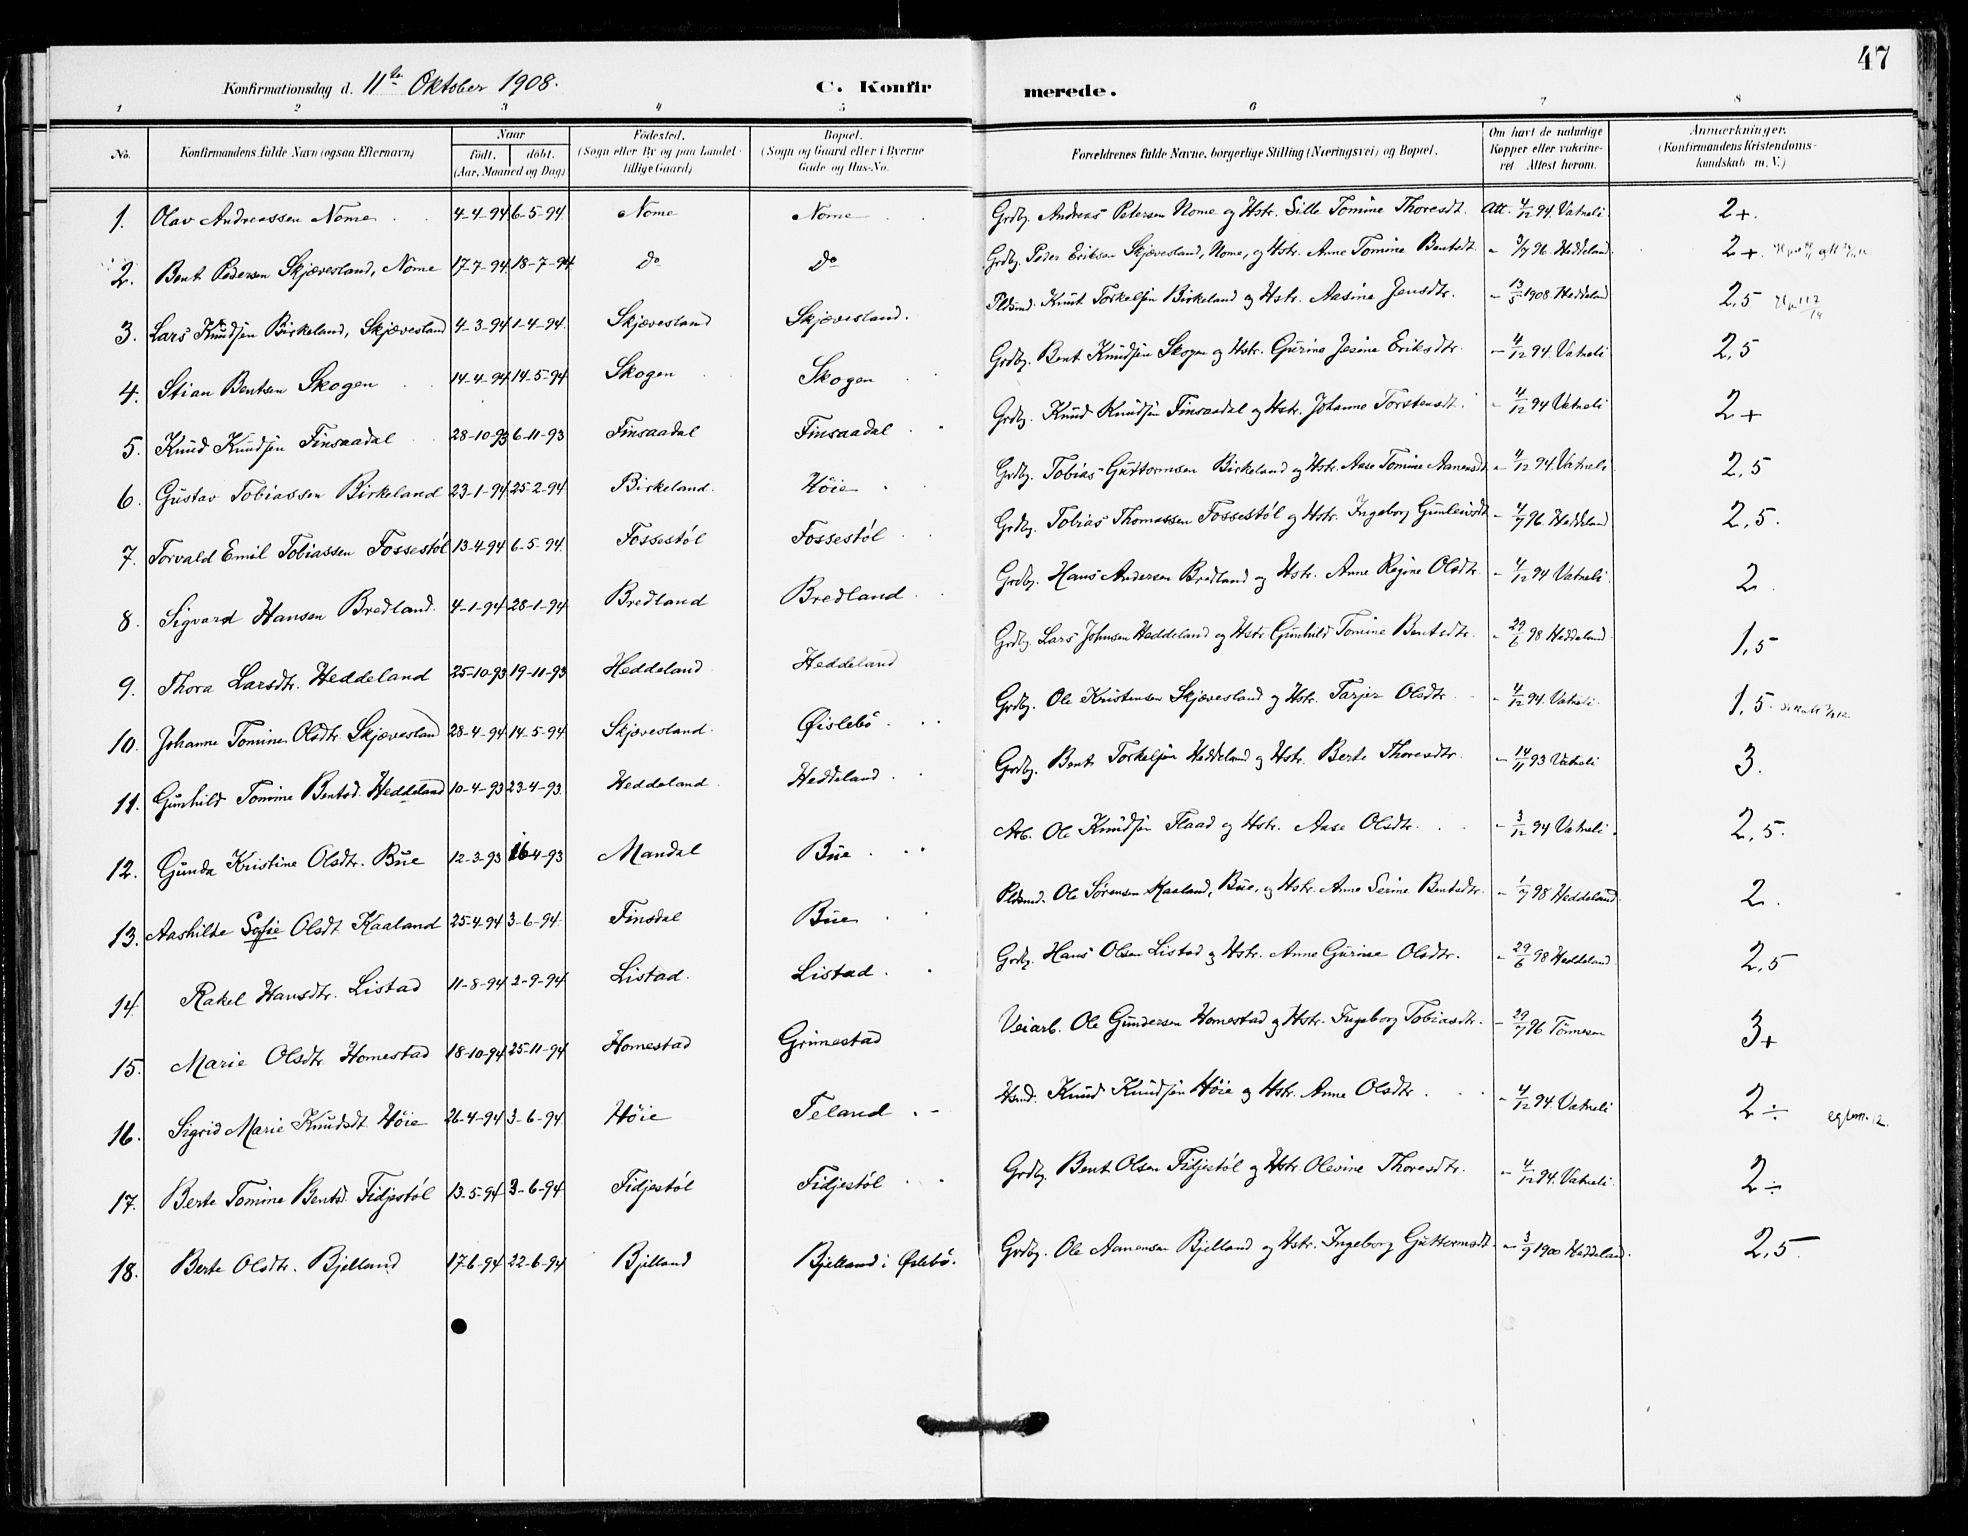 47
Konfirmationsdag d. 11te Oktober 1908.
C. Konfirmerede.
1 2 3 4 5 6 7 8
No. | Konfirmandens fulde Navn (ogsaa Efternavn) | Naar født. | døbt. (Aar, Maaned og Dag) | Fødested. (Sogn eller By og paa Landet tillige Gaard) | Bopæl. (Sogn og Gaard eller i Byerne Gade og Hus-No. | Forældrenes fulde Navne, borgerlige Stilling (Næringsvei) og Bopæl. | Om havt de naturlige Kopper eller vakcineret Attest herom. | Anmærkninger. (Konfirmandens Kristendomskundskab m. V.)
1. Olav Andreassen Nome 4-4-94 6-5-94 Nome Nome Grdbg. Andreas Petersen Nome og Hstr. Sille Tomine Thoresdt. Att. 4/12 94. Vatneli 2+.
2. Bent Pedersen Skjævesland, Nome 17-7-94 18-7-94 Do Do Grdbg. Peder Eriksen Skjævesland, Nome, og Hstr. Anne Tomine Bentsdt. - 3/7 96. Heddeland 2+.
3. Lars Knudsen Birkeland, Skjævesland 4-3-94 1-4-94. Skjævesland Skjævesland. Pldsmd. Knut Torkelsen Birkeland og Hstr. Aasine Jensdtr. - 13/5 1908 Heddeland 2,5
4. Stian Bentsen Skogen 14-4-94 14-5-94 Skogen Skogen Grdbg. Bent Knudsen Skogen og Hstr. Gurine Jesine Eriksdtr. - 4/12 94. Vatneli 2,5
5. Knud Knudsen Finsaadal 28-10-93 6-11-93 Finsaadal Finsaadal Grdbg. Knud Knudsen Finsaadal og Hstr. Johanne Torstensdt. - 4/12 94 Vatneli 2+
6. Gustav Tobiassen Birkeland 23-1-94 25-2-94 Birkeland. Høie Grdbg. Tobias Guttormsen Birkeland og Hstr. Aase Tomine Aanensdt. - 4/12 94. Vatneli 2,5
7. Torvald Emil Tobiassen Fossestøl 13-4-94 6-5-94. Fossestøl Fossestøl Grdbg. Tobias Thomassen Fossestøl og Hstr. Ingeborg Gunleivsdt. - 4/7 96 Heddeland 2,5.
8. Sigvard Hansen Bredland. 4-1-94 28-1-94 Bredland Bredland Grdbg. Hans Andersen Bredland og Hstr. Anne Regine Olsdtr. - 4/12 94 Vatneli 2.
9. Thora Larsdtr. Heddeland 25-10-93 19-11-93 Heddeland Heddeland Grdbg. Lars Johnsen Heddeland og Hstr Gunhild Tomine Bentsdtr. - 29/6 98 Heddeland 1,5
10. Johanne Tomine Olsdtr. Skjævesland 28-4-94 14-5-94 Skjævesland. Øislebø Grdbg. Ole Kristensen Skjævesland og Hstr. Tarjer Olsdtr. - 4/12 94. Vatneli. 1,5.
11. Gunhild Tomine Bentsd. Heddeland 10-4-93 23-4-93. Heddeland Heddeland Grdbg. Bent Torkelsen Heddeland og Hstr. Berte Thoresdtr. - 14/11 93 Vatneli 3.
12. Gunda Kristine Olsdtr. Bue 12-3-93 16-4-93 Mandal Bue Arb. Ole Knudsen Flaad og Hstr. Aase Olsdtr. - 3/12 94 Vatneli. 2,5.
13. Aashilde Sofie Olsdt. Kaaland 25-4-94 3-6-94. Finsdal Bue Pldsmd. Ole Sørensen Kaaland, Bue, og Hstr. Anne Serine Bentsdtr. - 1/7 98 Heddeland. 2.
14. Rakel Hansdtr. Listad 11-8-94 2-9-94 Listad. Listad. Grdbg. Hans Olsen Listad og Hstr. Anne Gurine Olsdtr. - 29/6 98 Heddeland 2,5
15. Marie Olsdtr. Homestad 18-10-94 25-11-94 Homestad Grimestad Veiarb. Ole Gundersen Homestad og Hstr. Ingeborg Tobiasdtr. - 29/7 96 Tønnesen 3+
16. Sigrid Marie Knudsdt. Høie 26-4-94 3-6-94. Høie Teland Hsmd. Knud Knudsen Høie og Hstr. Anne Olsdtr. - 4/12 94. Vatneli 2÷
17. Berte Tomine Bentsd. Fidjestøl 13-5-94 3-6-94 Fidjestøl Fidjestøl Grdbg. Bent Olsen Fidjestøl og Hstr. Olevine Thoresdtr. - 4/12 94. Vatneli 2÷
18. Berte Olsdtr. Bjelland 17-6-94 22-6-94 Bjelland Bjelland i Øslebø. Grdbg. Ole Aanensen Bjelland og Hstr. Ingeborg Guttormsdt. - 3/9 1900 Heddeland. 2,5.